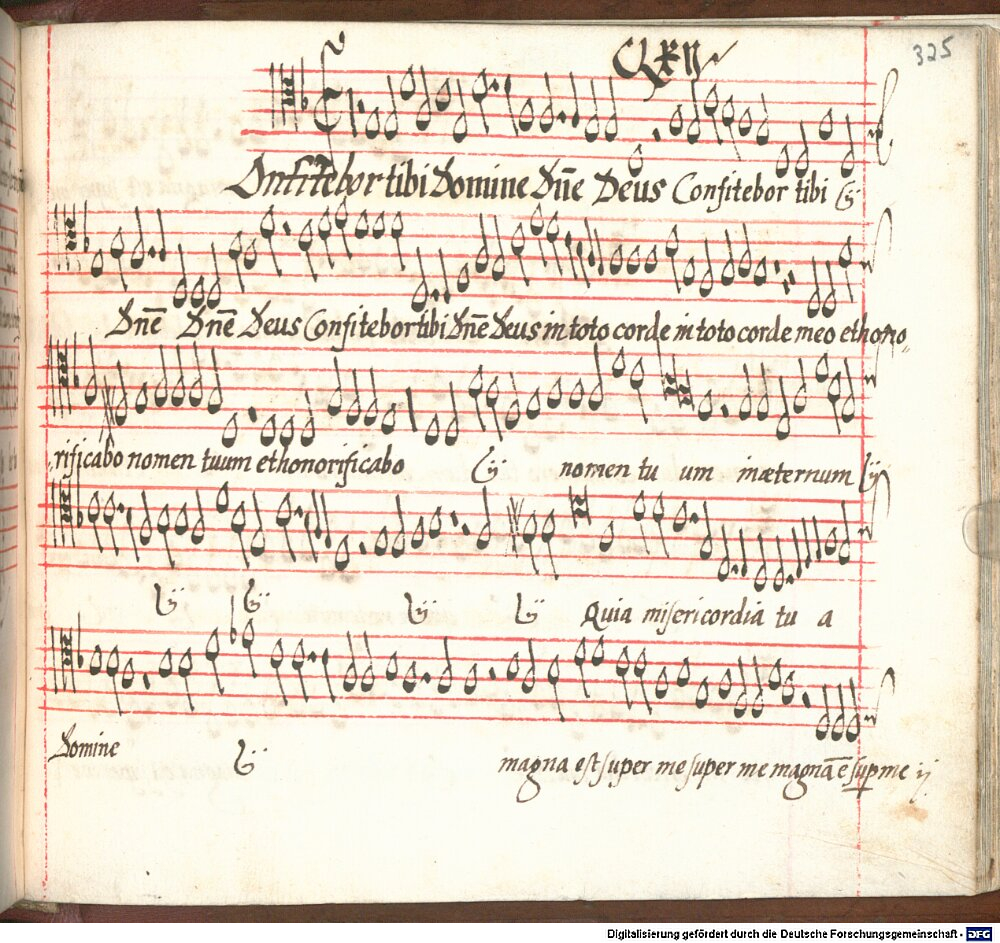 CLXII
325
Onfitebor tibi Domine Dñe Deus Confitebor tibi ij
Dñē Dñē Deus Confitebor tibi Dñē Deus in toto corde in toto corde meo et hono„
„rificabo nomen tuum et honorificabo ij nomen tu um in æternum ij
ij ij ij ij Quia misericordia tu a
Domine ij magna est super me super me magnā ē sup me ij
Digitalisierung gefördert durch die Deutsche Forschungsgemeinschaft - DFG